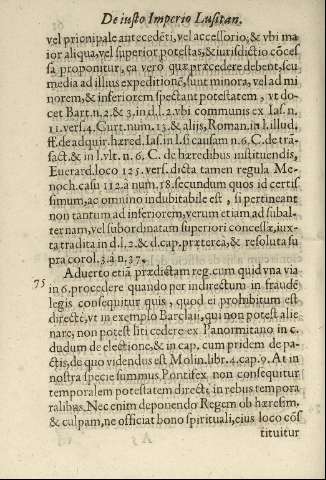 De iusto Imperio Lusitan.
vel prionipale antecedẽti, vel accessorio, & vbi ma
ior aliqua, vel superior potestas, & iurisdictio cõces
sa proponitur, ea vero quæ præcedere debent, seu
media ad illius expeditionẽ, sunt minora, vel ad mi
norem, & inferiorem spectant potestatem, vt do-
cet Bart. n. 2. & 3. in d. l. 2. vbi communis ex Ias. n.
11. vers. 4. Curt. num. 13. & alijs, Roman. in l. illud.
ff. de adquir. hæred. Ias. in l. si causam n. 6. C. de trã-
sact. & in l. vlt. n. 6. C. de hæredibus instituendis,
Euerard. loco 125. vers. dicta tamen regula Me-
noch. casu 112. a num. 18. secundum quos id certis
simum, ac omnino indubitabile est, si pertineant
non tantum ad inferiorem, verum etiam ad subal-
ternam, vel subordinatam superiori concessæ, iux-
ta tradita in d. l. 2. & d. cap. præterea, & resoluta su
pra corol. 3. a n. 37.
Aduerto etiã prædictam reg. cum quid vna via
75 in 6. procedere quando per indirectum in fraudẽ
legis consequitur quis, quod ei prohibitum est
directe, vt in exemplo Barclaij, qui non potest alie
nare, non potest liti cedere ex Panormitano in c.
dudum de electione, & in cap. cum pridem de pa-
ctis, de quo videndus est Molin. libr. 4. cap. 9. At in
nostra specie summus Pontifex non consequitur
temporalem potestatem directe in rebus tempora
ralibus. Nec enim deponendo Regem ob hæresim.
& culpam, ne officiat bono spirituali, eius loco cõs
tituitur